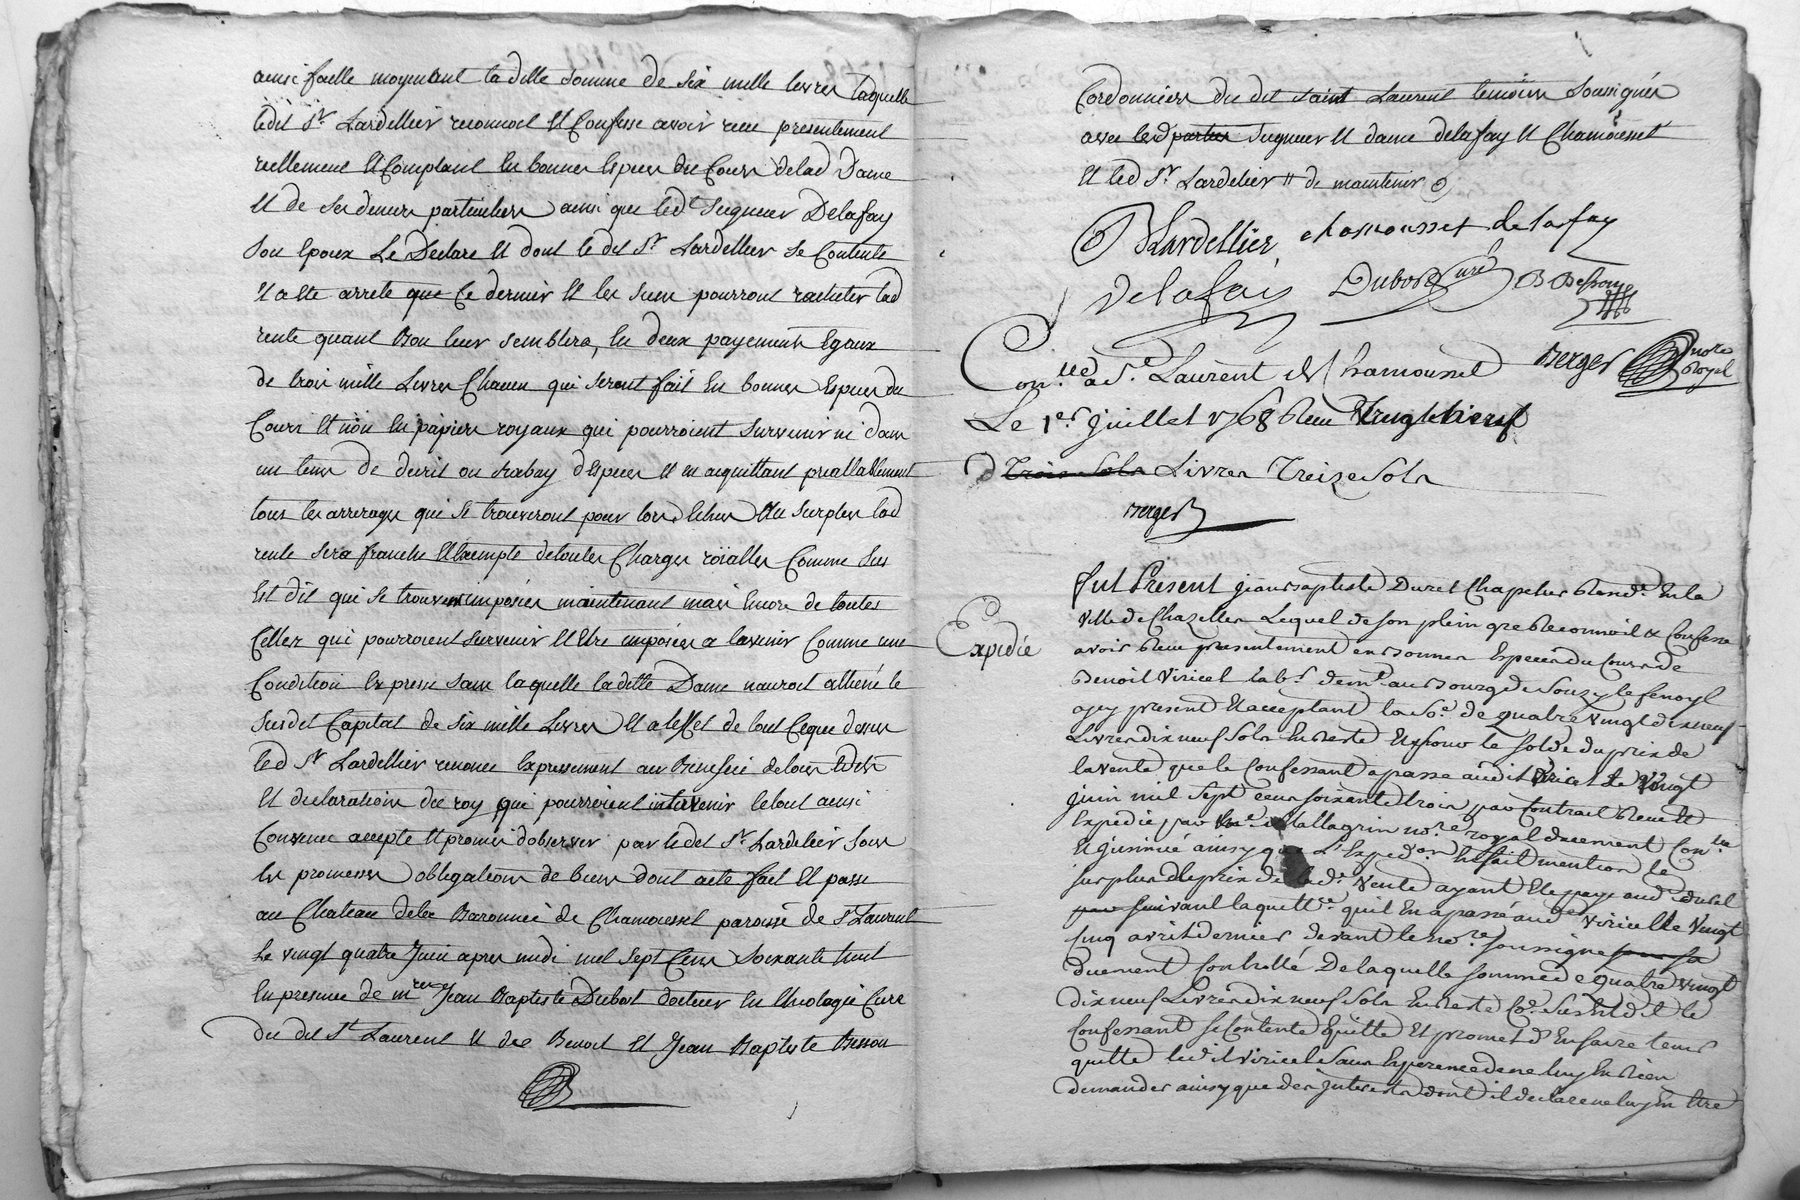 ainsi faitte moyenant la ditte somme de six mille livres laquelle
ledit Sr. Lardellier reconnoit et Confesse avoir reçu presentement
reellement et Comptant en bonnes Espces du Cours de lad Dame
et de ses deniers particuliers ainsi que ledt Seigneur Delafay
son Epoux Le Declare et dont le dit Sr Lardellier se Contente
et a ete arrete que Ce dernier et les siens pourront racheter lad
rente quant Bon leur semblera, en deux payements Egaux
de trois mille Livres Chacun qui seront fait En bonnes Espces du
Cours et non En papiers royaux qui pourroient survenir ni dans
un tems de decrit ou Rabay d'Espces et en acquittant preallablement
tous les arrerages qui se trouveront pour lors Echus Au surplus lad
rente sera franche et Exempte de toutes Charges roialles Comme sus
Est dit qui se trouvent imposées maintenant mais Encore de toutes
Celles qui pourroient survenir et Etre imposées a l'avenir Comme une
Condition Expresse sans laquelle la ditte Dame n'auroit alliené le
susdit Capital de six mille Livres et a l'effet de tout Ceque dessus
led Sr Lardellier renonce Expressement au Benefice de tous Edits
et declarations du roy qui pourroient intervenir le tout ainsi
Convenu accepte et promis d'observer par ledit Sr Lardelier sous
les promesses obligations de biens dont acte fait et passé
au Chateau dela Baronnie de Chamousset paroisse de St Laurent
Le vingt quatre Juin apres midi mil sept Cens soixante huit
En presence de mre Jean Baptiste Dubost docteur En theologie Curé
du dit St Laurent et de Benoit et Jean Baptiste Besson
Cordonniers du dit saint Laurent temoins soussignés
avec led parties Seigneur et dame delafay et Chamousset
et led Sr. Lardelier // de maintenir
Lardellier, chamousset de lafay
Delafaÿ Dubost Curé B Besson
Con.llé a St. Laurent de Chamousset Berger nore Royal
Le 1er. Juillet 1768 Reçu Vingt neuf
d trois sols Livres Treize sols
Berger
Expedié
Fut Present Jean Baptiste Duret Chapelier demt. En la
Ville de Chazelles Lequel de son plein gré Reconnoit & Confesse
avoir Reçu presentement en Bonnes Especes du Cours de
Benoit Viricel lab.r demt. au Bourg de Souzy le fenoyl
a ce present et acceptant la so.e de quatre vingt dix neuf
Livres dix neuf sols En Reste et pour le solde du prix de
la vente que le Confessant a passé audit Viricel Le Vingt
Juin mil sept cens soixante trois par Contrat Reçu et
Expedié par Me. allagrin no.re royal duement Con.llé
Et insinué ainsy que L'Exped.on En fait mention le
surplus du prix de lad.e vente ayant Eté payé aud. Duret
par suivant la quitt.ce quil En a passé aud. Viricel le Vingt
Cinq avril dernier devant le no.re soussigné
duement Controllé De laquelle somme de quatre vingt
dix neuf Livres dix neuf sols En Reste Co.e sus Est dit le
Confessant se Contente Quitte Et promet d'En faire tenir
quitte ledit Viricel sans Esperence de ne luy En Rien
demander ainsy que des interests dont il declare ne luy En Etre